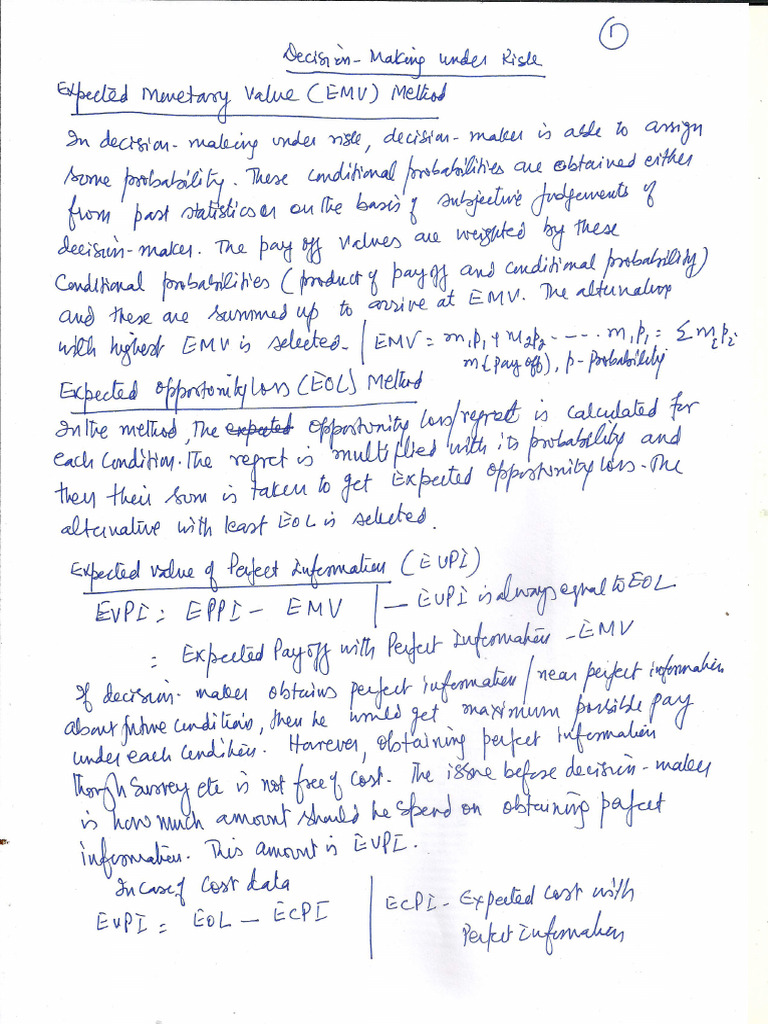 1
Decision-Making under Risk
Expected Monetary Value (EMV) Method
In decision-making under risk, decision-maker is able to assign
some probability. These conditional probabilities are obtained either
from past statistics or on the basis of subjective judgements of
decision-maker. The pay off values are weighted by these
conditional probabilities (product of pay off and conditional probability)
and these are summed up to arrive at EMV. The alternative
with highest EMV is selected. | EMV = m1p1 + m2p2 ----- m1p1 = Σ mipi
m (pay off), p - probability
Expected Opportunity Loss (EOL) Method
In the method, the expected opportunity loss/regret is calculated for
each condition. The regret is multiplied with its probability and
then their sum is taken to get Expected Opportunity Loss. The
alternative with least EOL is selected.
Expected value of Perfect Information (EVPI)
EVPI = EPPI - EMV | - EVPI is always equal to EOL
= Expected Pay off with Perfect Information - EMV
If decision-maker obtains perfect information / near perfect information
about future conditions, then he would get maximum possible pay
under each condition. However, obtaining perfect information
though survey etc is not free of cost. The issue before decision-maker
is how much amount should he spend on obtaining pafect
information. This amount is EVPI.
In case of cost data
EVPI = EOL - ECPI | ECPI - Expected cost with
Perfect Information